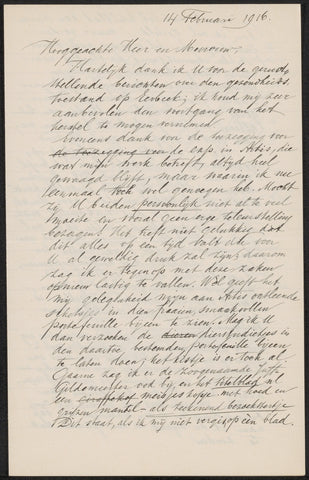 14 Februari 1916.
Hooggeachte Heer en Mevrouw,
Hartelijk dank ik U voor de gerust
stellende berichten over den gezondheids
toestand op Eerbeek; ik houd mij zeer
aanbevolen den voortgang van het
herstel te mogen vernemen.
Eveneens dank voor de toezegging voor
de toezegging voor de expo. in Artis, die
wat mijn werk betreft, altijd heel
gewaagd blijft, maar waarin ik nu
eenmaal toch wel genoegen heb. Mocht
zij U beiden persoonlijk niet al te veel
moeite en vooral geen erge teleurstelling
bezorgen! Het treft niet gelukkig dat
dit alles op een tijd valt die voor
U al geweldig druk zal zijn; daarom
zag ik er tegenop met deze zaken
opnieuw lastig te vallen. Wel geeft het
mij gelegenheid mijn aan Artis ontleende
schetsjes in dien fraaien, smaakvollen
portefeuille bijeen te zien. Mag ik U
dan verzoeken de dierstudietjes in
den daartoe dienenden portefeuille bijeen
te laten doen; het kistje is er ook al.
Gaarne zag ik er de zorgenaamde
Gildemeester ook bij, en het titelblad
een meisjeskopje met hoed en
grijzen mantel - als teekenend bezoekstertje
Dit staat, als ik mij niet vergis, op een blad